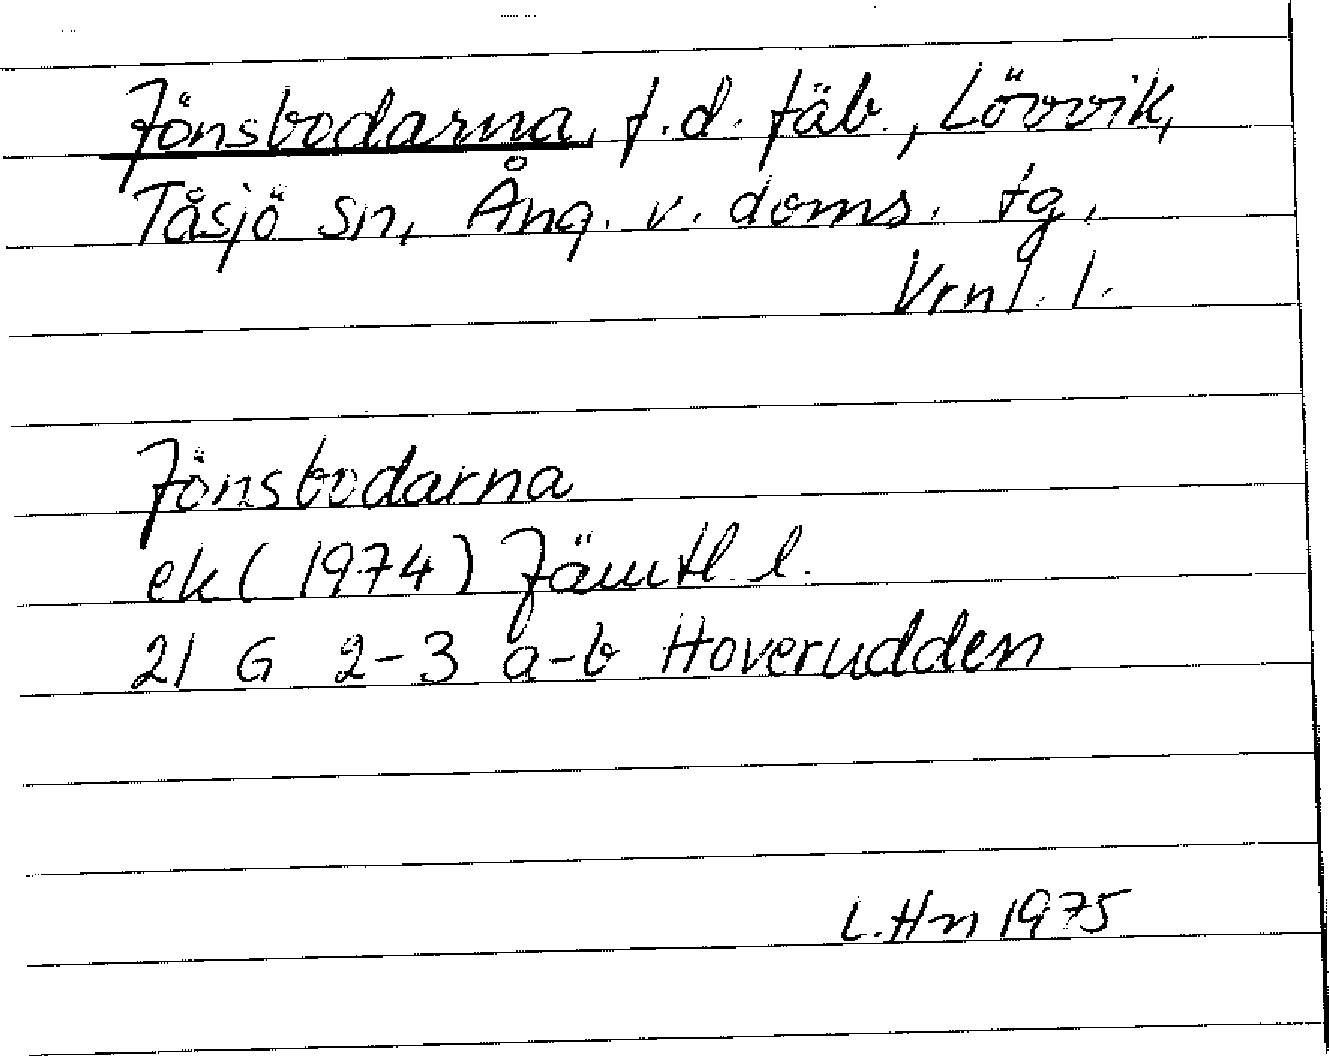 Jönsbodarna, f.d. fäb., Lövvik,
Tåsjö sn, Ång. v. doms. tg,
Vrnl. l.
Jönsbodarna
ek (1974) Jämtl. l.
21 G 2-3 a-b Hoverudden
L.Hn 1975